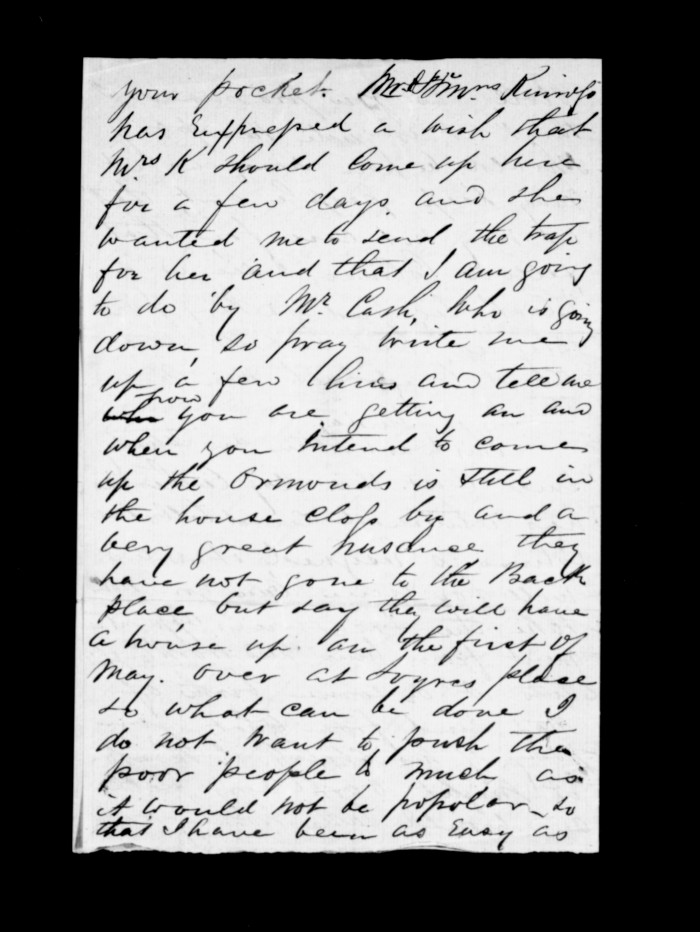 your pocket. Mrs Kinross
has Expressed a wish that
Mrs K should Come up here
for a few days. and she
wanted me to send the trap
for her and that I am going
to do by Mr. Cash, who is going
down, so pray write me
up a few lines and tell me
how you are getting an and
when you intend to come
up the Ormonds is still in
the house Closs by and a
very great nusence they
have not gone to the Back
place but say the will have
a house up. an the first of
May. over at plase
so what can be done I
do not want to push the
poor people to much as
it would not be popolar so
that I have been as Easy as